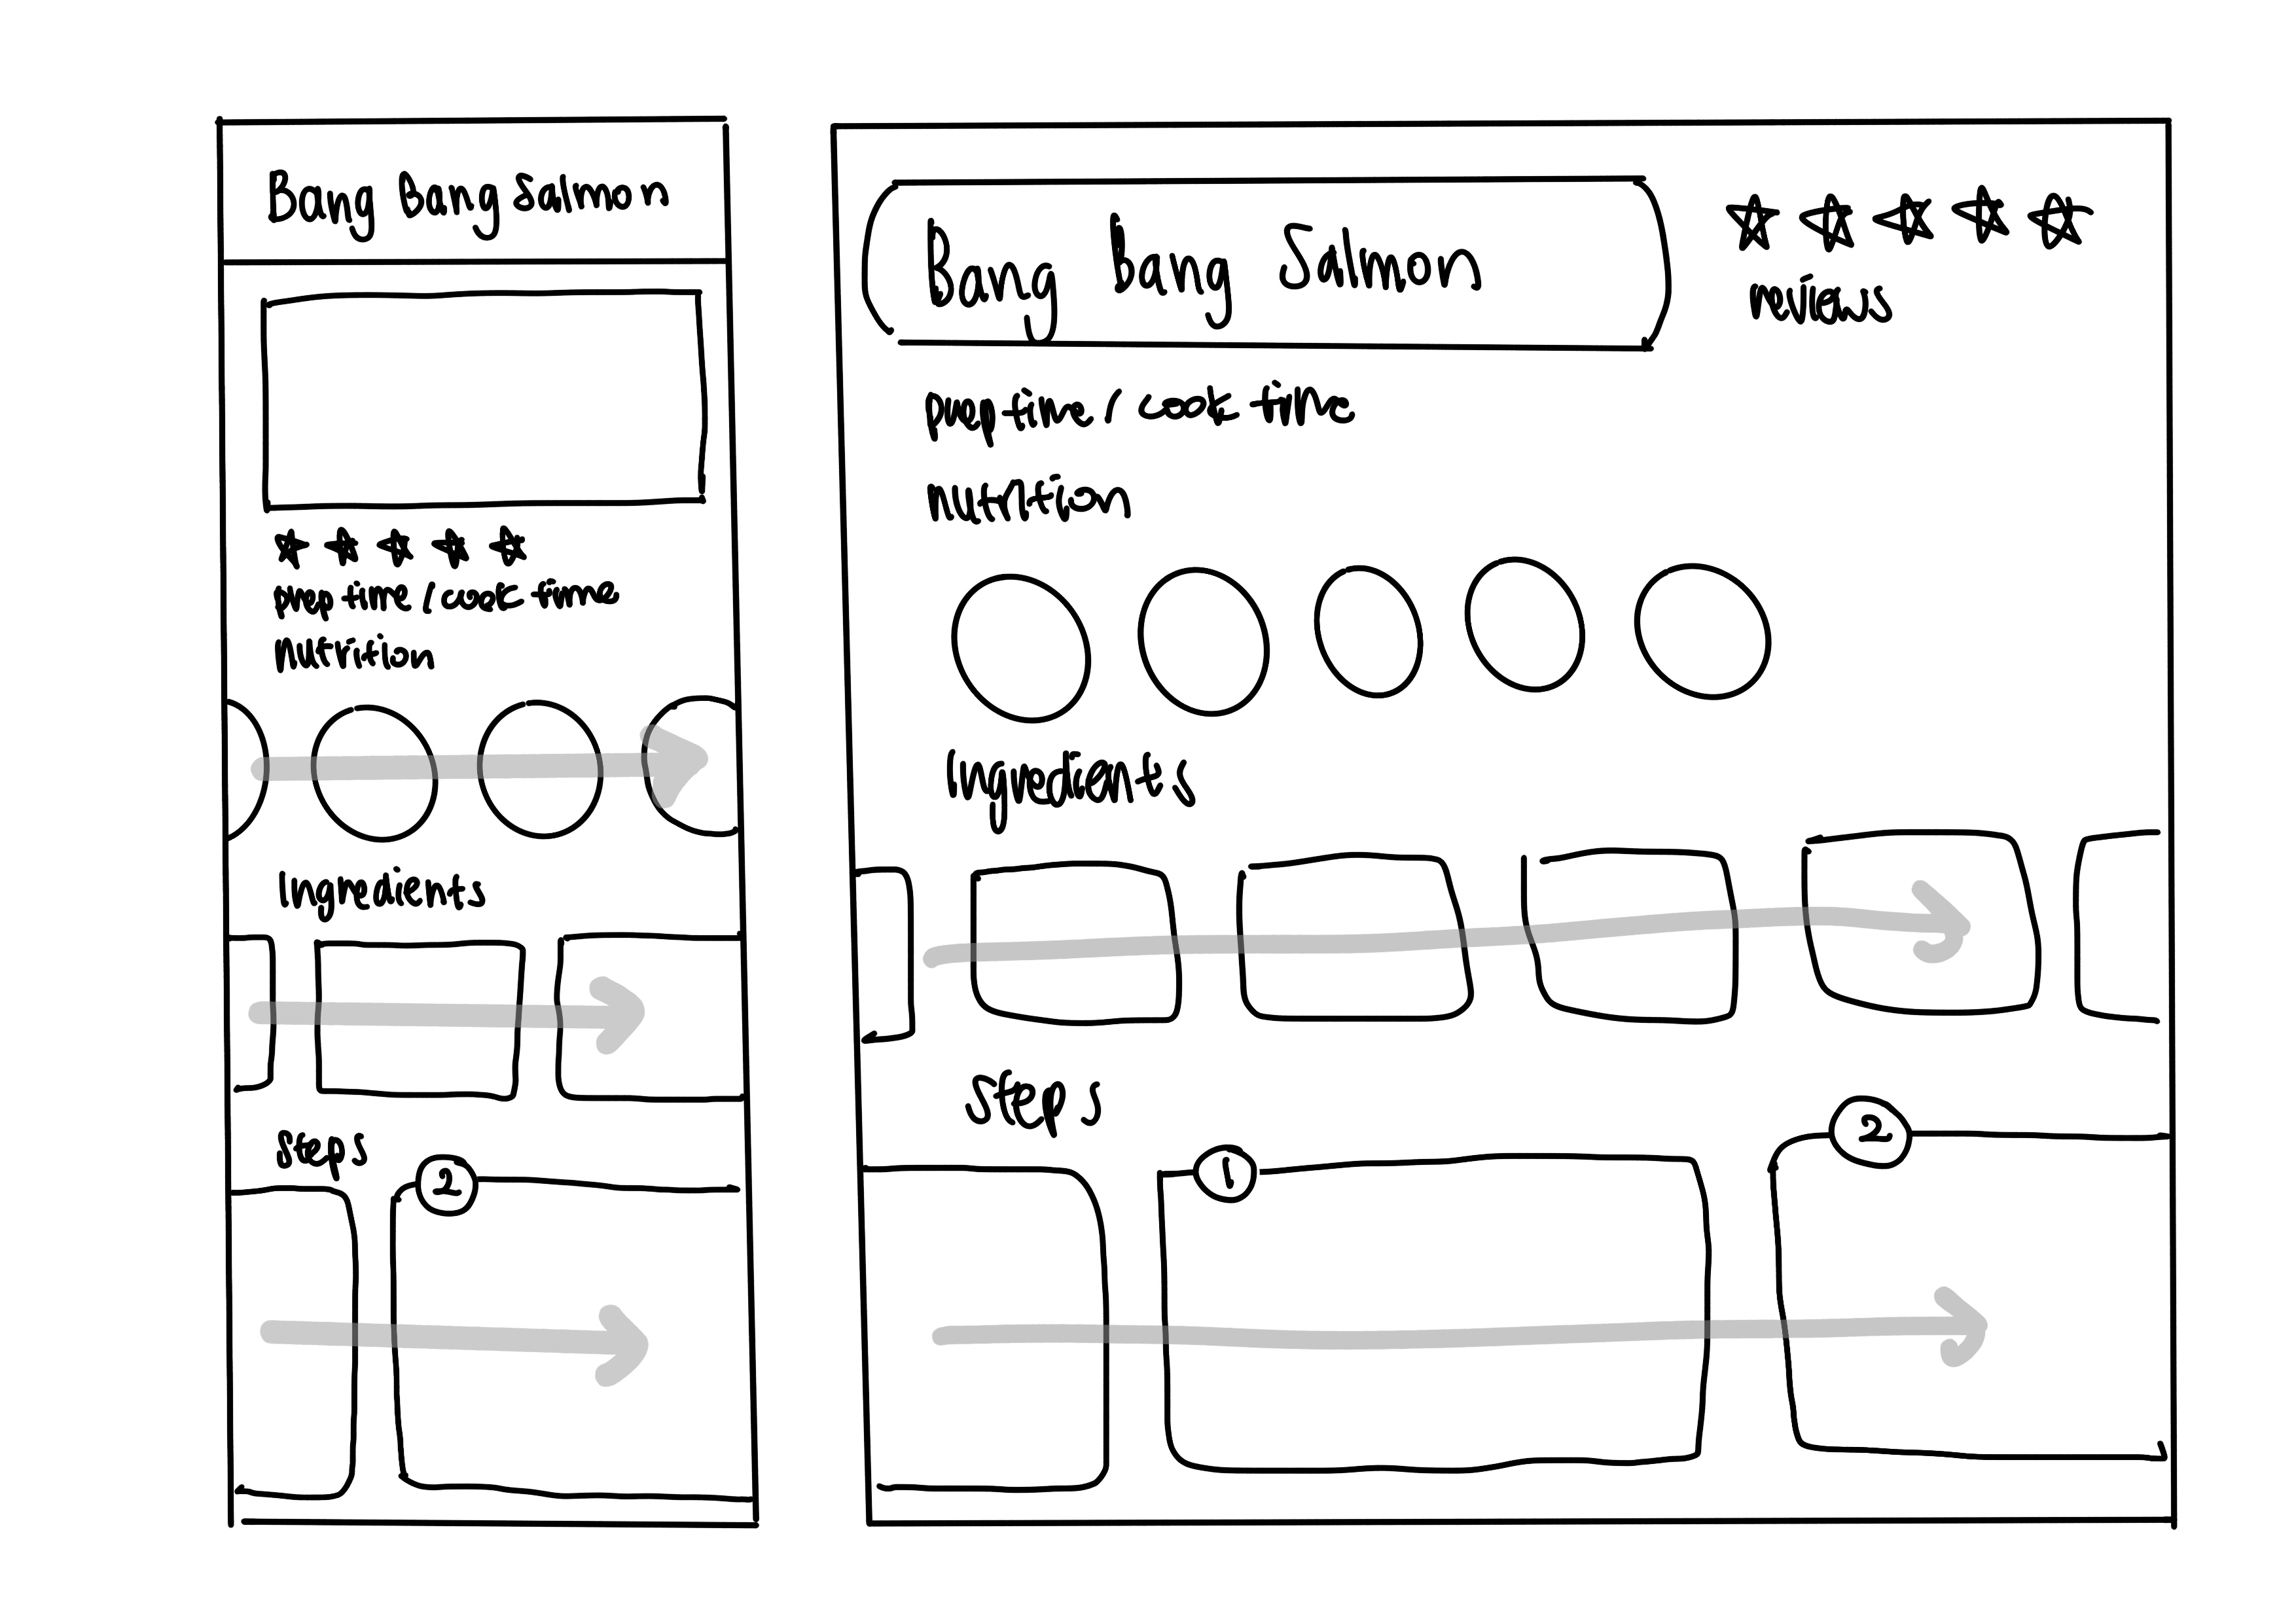 Bang Bang Salmon
prep time / cook time
Nutrition
Ingredients
Steps
2
Bang Bang Salmon
reviews
prep time / cook time
nutrition
Ingredients
Steps
1
2